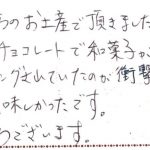 のお土産で頂きました
チョコレートで和菓子が
ングされていたのが衝撃
味しかったです。
ございます。